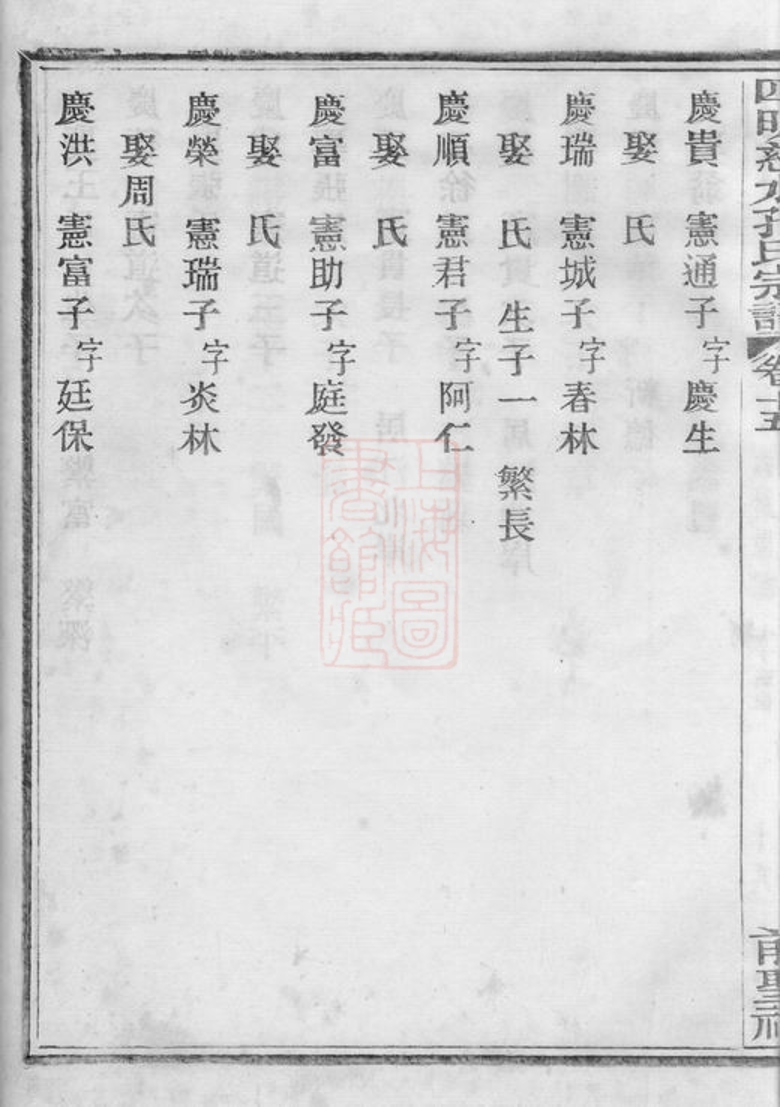 四明慈水孔氏宗譜 卷十五
慶貴 憲通子 字慶生
娶 氏
慶瑞 憲城子 字春林
娶 氏 生子一 繁長
慶順 憲君子 字阿仁
娶 氏
慶富 憲助子 字庭發
娶 氏
慶榮 憲瑞子 字炎林
娶周氏
慶洪 憲富子 字廷保
上海圖書館藏